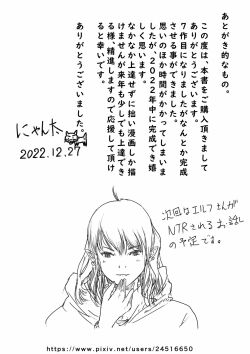 あとがき的なもの。
この度は、本書をご購入頂きまして
ありがとうございます。
7作目になりましたがなんとか完成
させる事ができました。
思いのほか時間がかかってしまいま
したが、2022年中に完成でき嬉
しく思います。
なかなか上達せずに拙い漫画しか描
けませんが来年も少しでも上達でき
る様、精進しますので応援して頂け
ると幸いです。
ありがとうございました。
にゃん木
2022.12.27
次回はエルフさんが
NTRされるお話し
の予定です。
https://www.pixiv.net/users/24516650